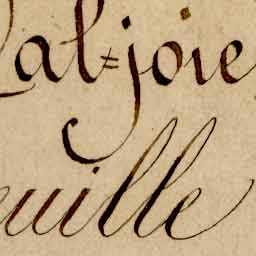 al=joie
uille